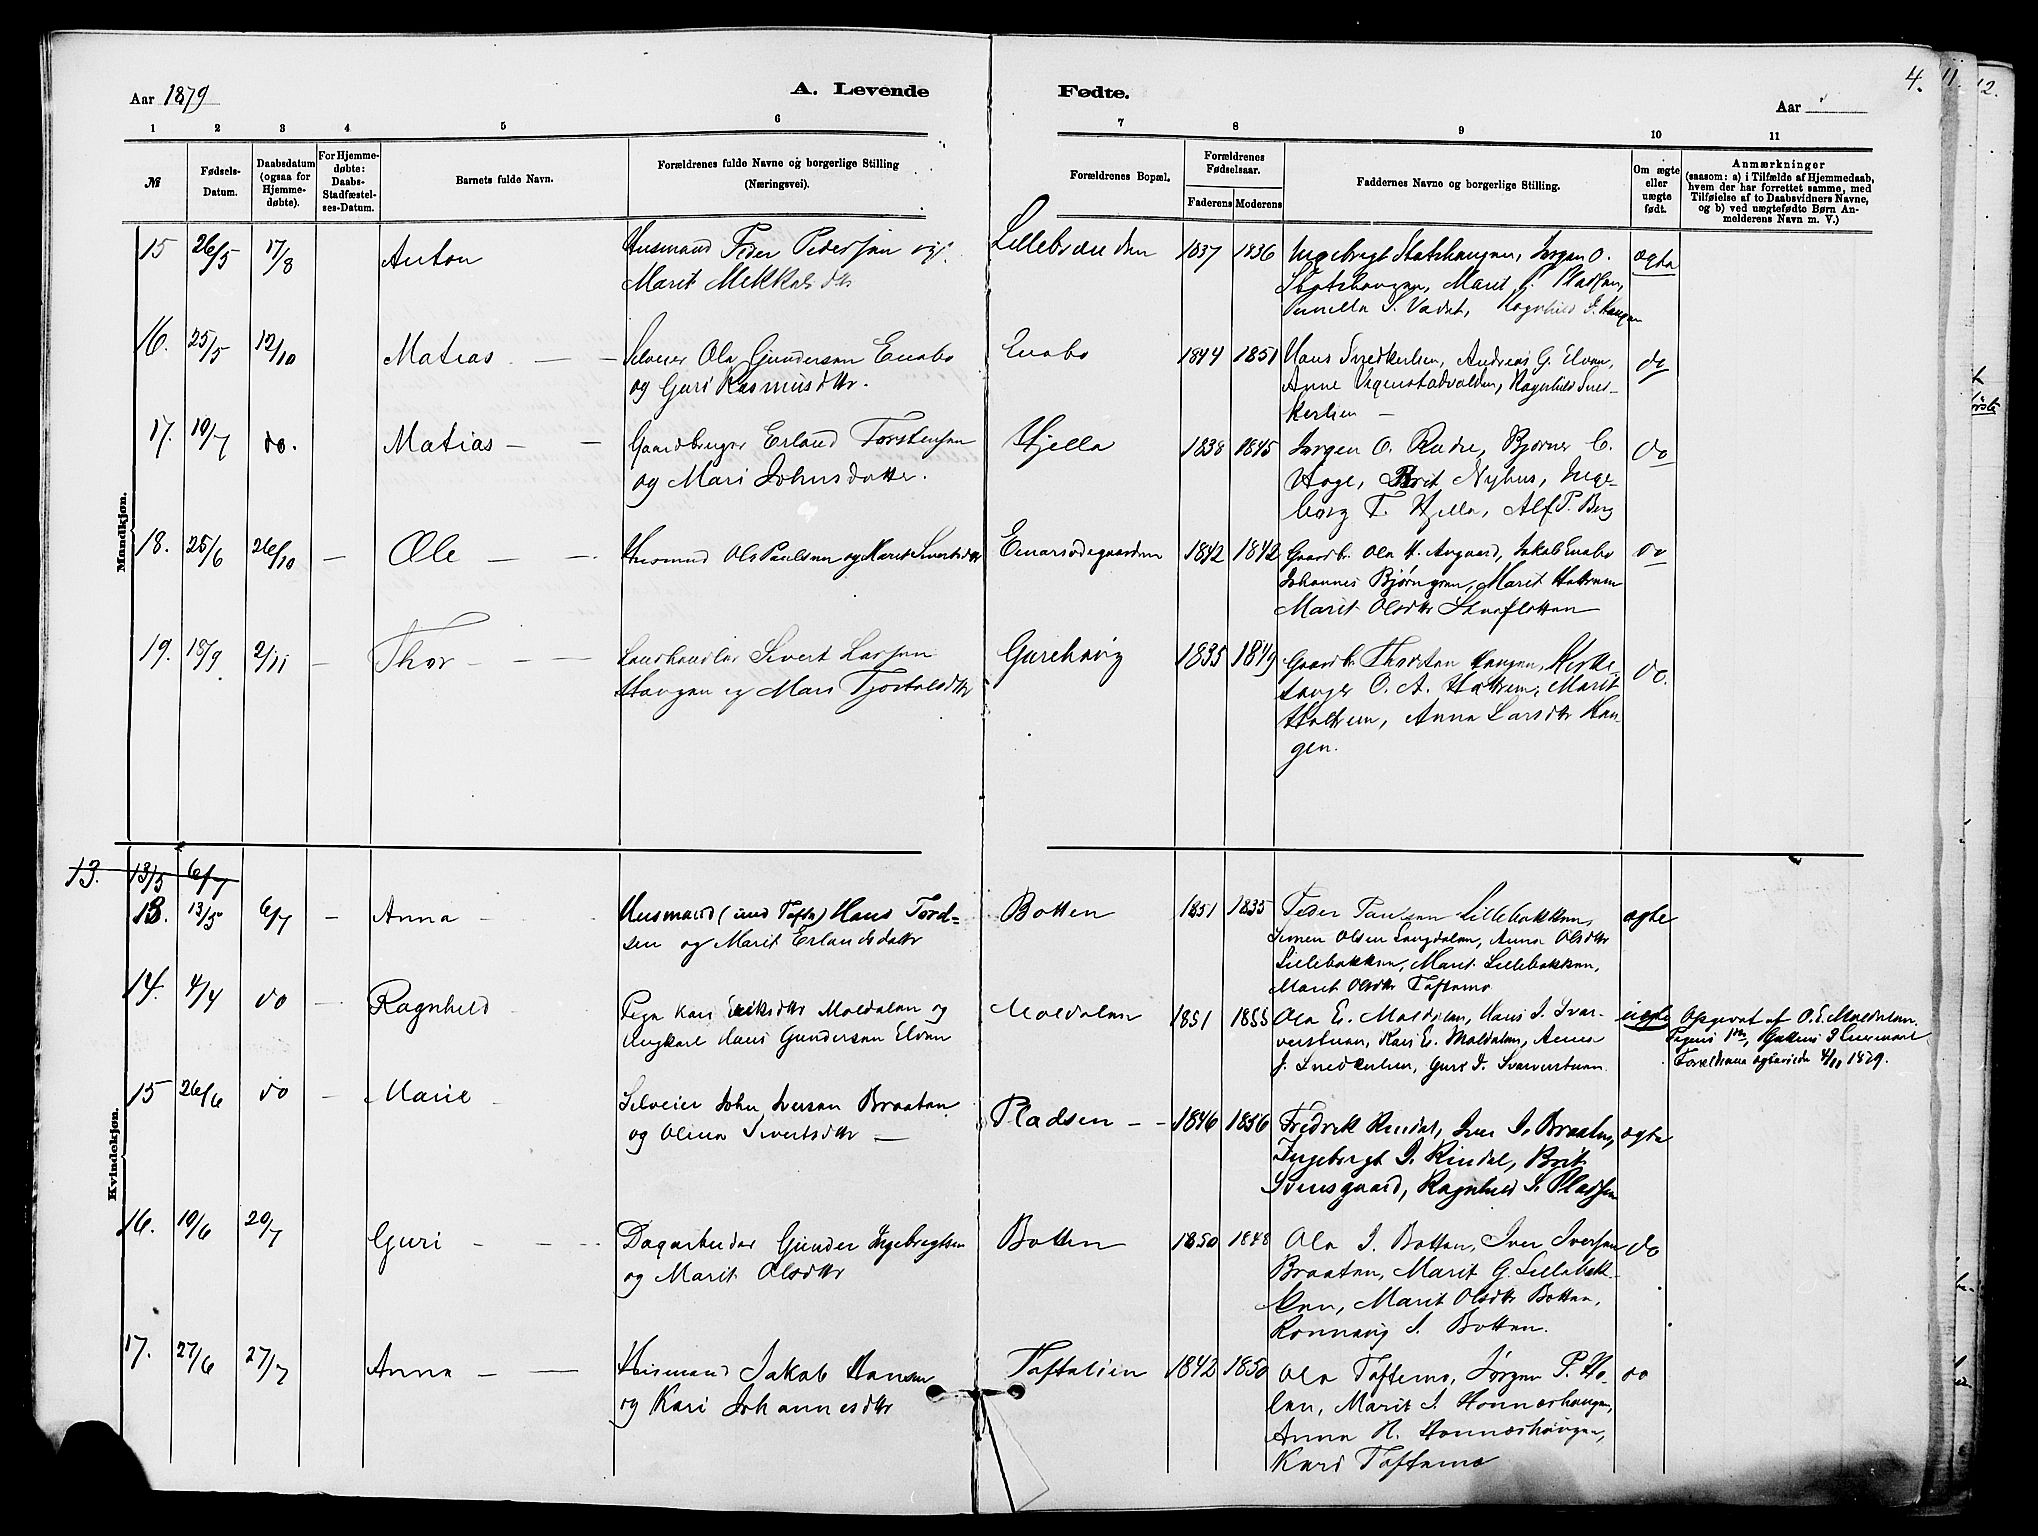 4.
11.
12.
Aar 1879
A. Levende
Fødte.
Aar
1 2 3 4 5 6 7 8 9 10 11
№
Fødsels-
Datum.
Daabsdatum
(ogsaa for
Hjemme-
døbte).
For Hjemme-
døbte:
Daabs-
Stadfæstel-
ses-Datum.
Barnets fulde Navn.
Forældrenes fulde Navne og borgerlige Stilling
(Næringsvei).
Forældrenes Bopæl.
Forældrenes
Fødselsaar.
Faderens Moderens
Faddernes Navne og borgerlige Stilling.
Om ægte
eller
uægte
født.
Anmærkninger
(saasom: a) i Tilfælde af Hjemmedaab,
hvem der har forrettet samme, med
Tilføielse af to Daabsvidners Navne,
og b) ved uægtefødte Børn An-
melderens Navn m. V.)
Mandkjøn.
15 26/5 17/8 Anton
Husmand Peder Pedersen og
Marit Mikkelsdtr
1837 1836
Ingebregt Stotshaugen, Jørgen O.
Stotshaugen, Marit P. Pladsen,
Pernille S. Vadet, Ragnhild J. Haugen
ægte
16. 25/5 12/10 Matias
Selveier Ola Gundersen Enabo
og Guri Rasmusdtr.
Enabo 1844 1851
Hans Snedkerlien, Andreas G. Elven,
Anne Vigenstadvolden, Ragnhild Sned-
kerlien
do
17. 10/7 do. Matias
Gaardbruger Erland Torstensen
og Mari Johnsdatter.
Hjelle 1838 1845
Jørgen O. Rudre, Bjørner C.
Hage, Brit Nyhus, Inge-
borg T. Hjelle, Alf P. Berg
do
18. 25/6 26/10 Ole
Husmand Ole Paulsen og Marit Sivertsdtr
Einarsødegaarden 1842 1842
Gaardbr. Ola H. Augaard, Jakob Enabo
Johannes Bjørngren, Marit Holtrem
Marit Olsdtr
do
19. 18/9 2/11 Thor
Landhandler Sivert Larsen
Haugen og Mari Tjostolsdtr
Gurehøvig 1835 1849
Gaardbr. Thorsten Haugen, Kirke-
sanger O. A. Holtrem, Marit
Holtrem, Anna Larsdtr Hau-
gen.
do.
Kvindekjøn.
13. 13/5 6/7
13. 13/5 6/7 Anna
Husmand (und Tofte) Hans Tord-
sen og Marit Erlandsdatter
Botten 1851 1835
Peder Paulsen Lillebakken,
Simen Olsen Langdalen, Anna Olsdtr
Lillebakken, Marit Lillebakken,
Marit Olsdtr Toftemo
ægte
14. 4/4 do Ragnhild
Pige Kari Eriksdtr Moldalen og
Ungkarl Hans Gundersen Elven
Moldalen 1851 1855
Ola E. Moldalen, Hans I. Svar-
verstuen, Kari E. Moldalen, Anne
J. Snedkerlien, Guri I. Svarverstuen
uægte
Opgivet af O. E. Moldalen.
Forældrene ægteviede 4/11 1879.
15 26/6 do Marie
Selveier John Iversen Braaten
og Olina Sivertsdtr
Pladsen 1846 1856
Fredrik Rindal, Iver I. Braaten,
Ingeborgt I. Rindal, Brit
Svensgaard, Ragnhild S. Pladsen
ægte
16. 10/6 20/7 Guri
Dagarbeider Gunder Ingebregtsen
og Marit Olsdtr
Botten 1850 1848
Ola I. Botten, Iver Iversen
Braaten, Marit G. Lillebak-
ken, Marit Olsdtr Botten,
Rønnaug I. Botten.
do
17. 27/6 27/7 Anna
Husmand Jakob Hansen
og Kari Johannesdtr
Toftelien 1842 1850
Ola Toftemo, Jørgen P. Ho-
len, Marit I. Honnørhaugen,
Anna H. Honnørhaugen,
Kari Toftemo
do